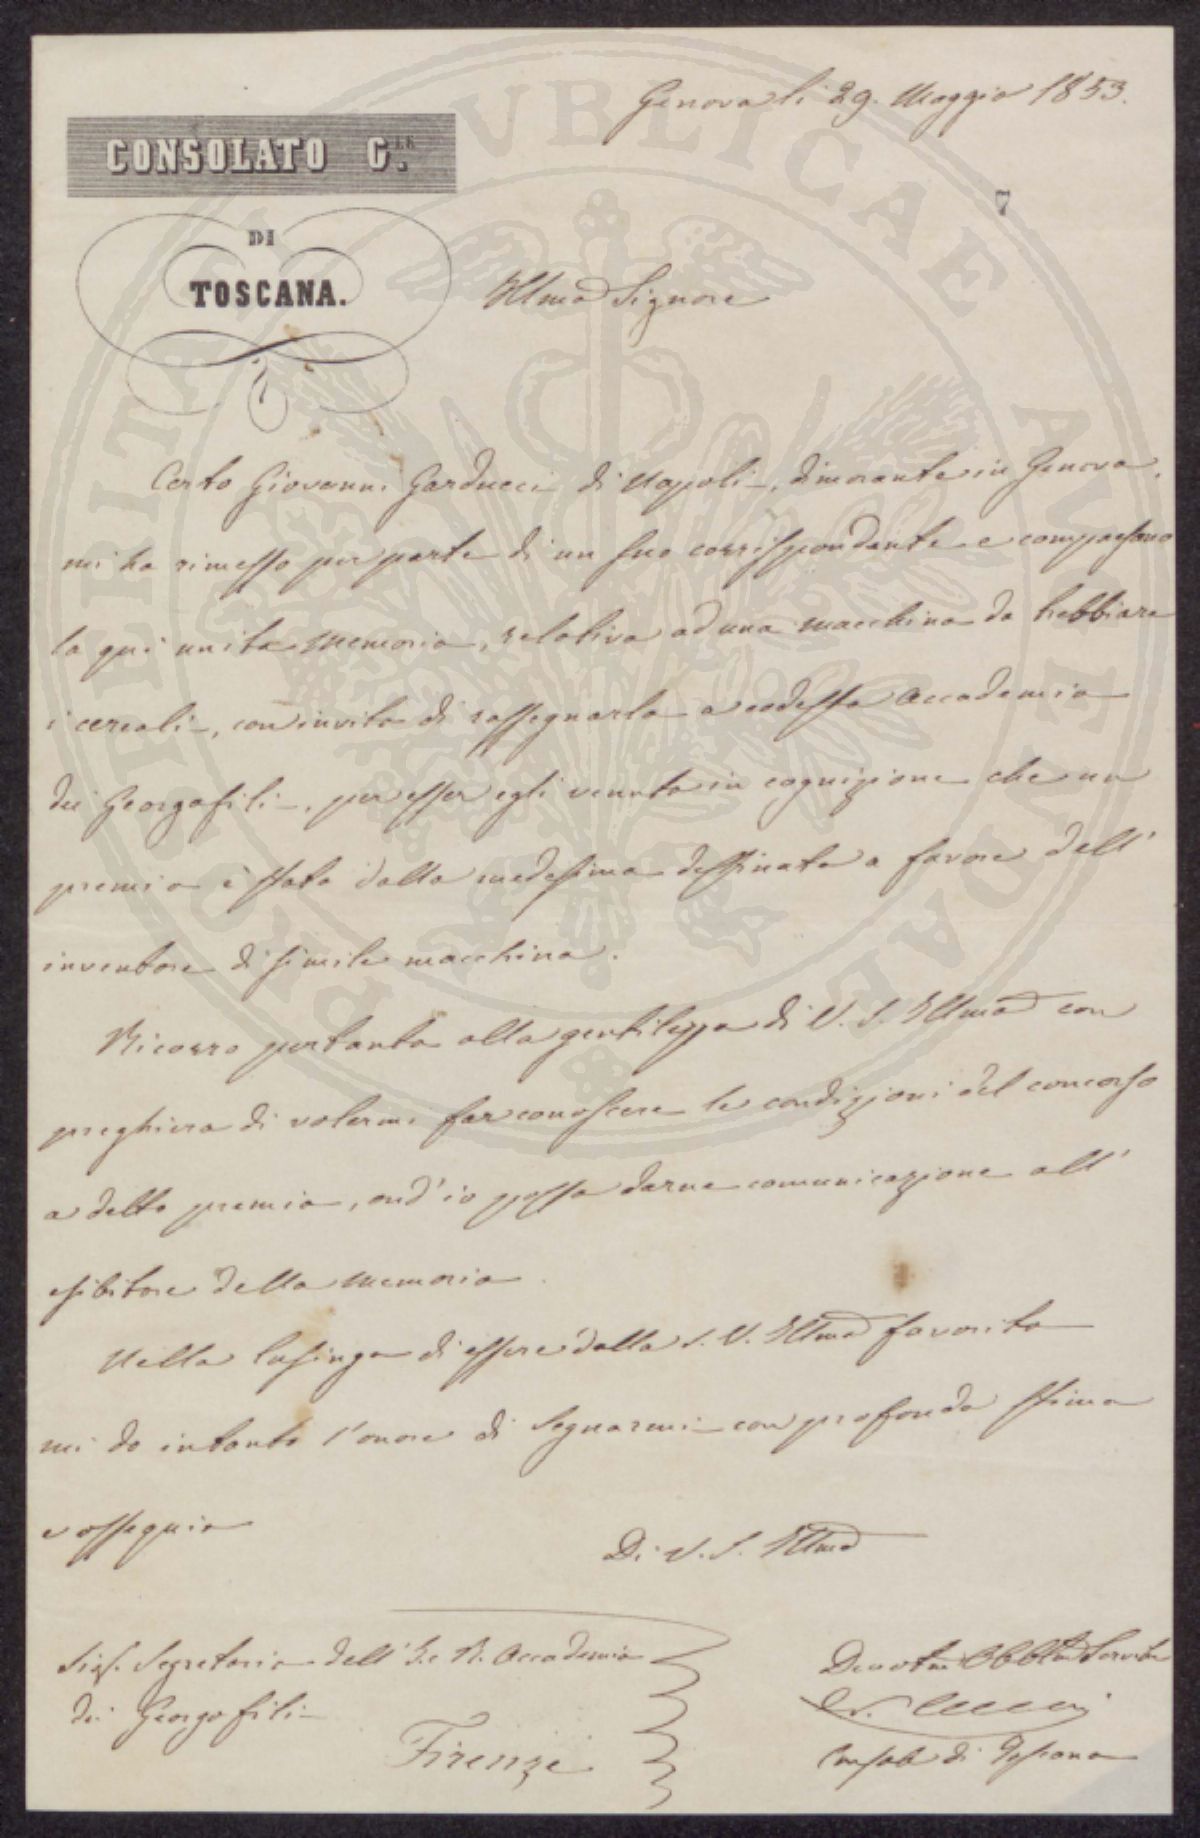 Genova li 29. Maggio 1853.
CONSOLATO G.LE
7
DI
TOSCANA.
Illmo Signore
Certo Giovanni Garducci di Napoli, dimorante in Genova,
mi ha rimesso per parte di un suo corrispondente e compaesano
la qui unita Memoria, relativa ad una macchina da trebbiare
i cereali, con invito di rassegnarla a codesta Accademia
dei Georgofili, per esser egli venuto in cognizione che un
premio è stato dalla medesima destinato a favore dell'
inventore di simile macchina.
Ricorro pertanto alla gentilezza di V. S. Illma con
preghiera di volermi far conoscere le condizioni del concorso
a detto premio, ond'io possa darne comunicazione all'
esibitore della Memoria.
Nella lusinga di essere dalla S. V. Illma favorito
mi do intanto l'onore di segnarmi con profonda stima
e ossequio
Di V. S. Illma
Sigr. Segretario dell' I. e R. Accademia
dei Georgofili
Firenze
Devotmo Obblmo Servitre
Console di Toscana
PROSPERITATI PUBLICAE AUGENDAE